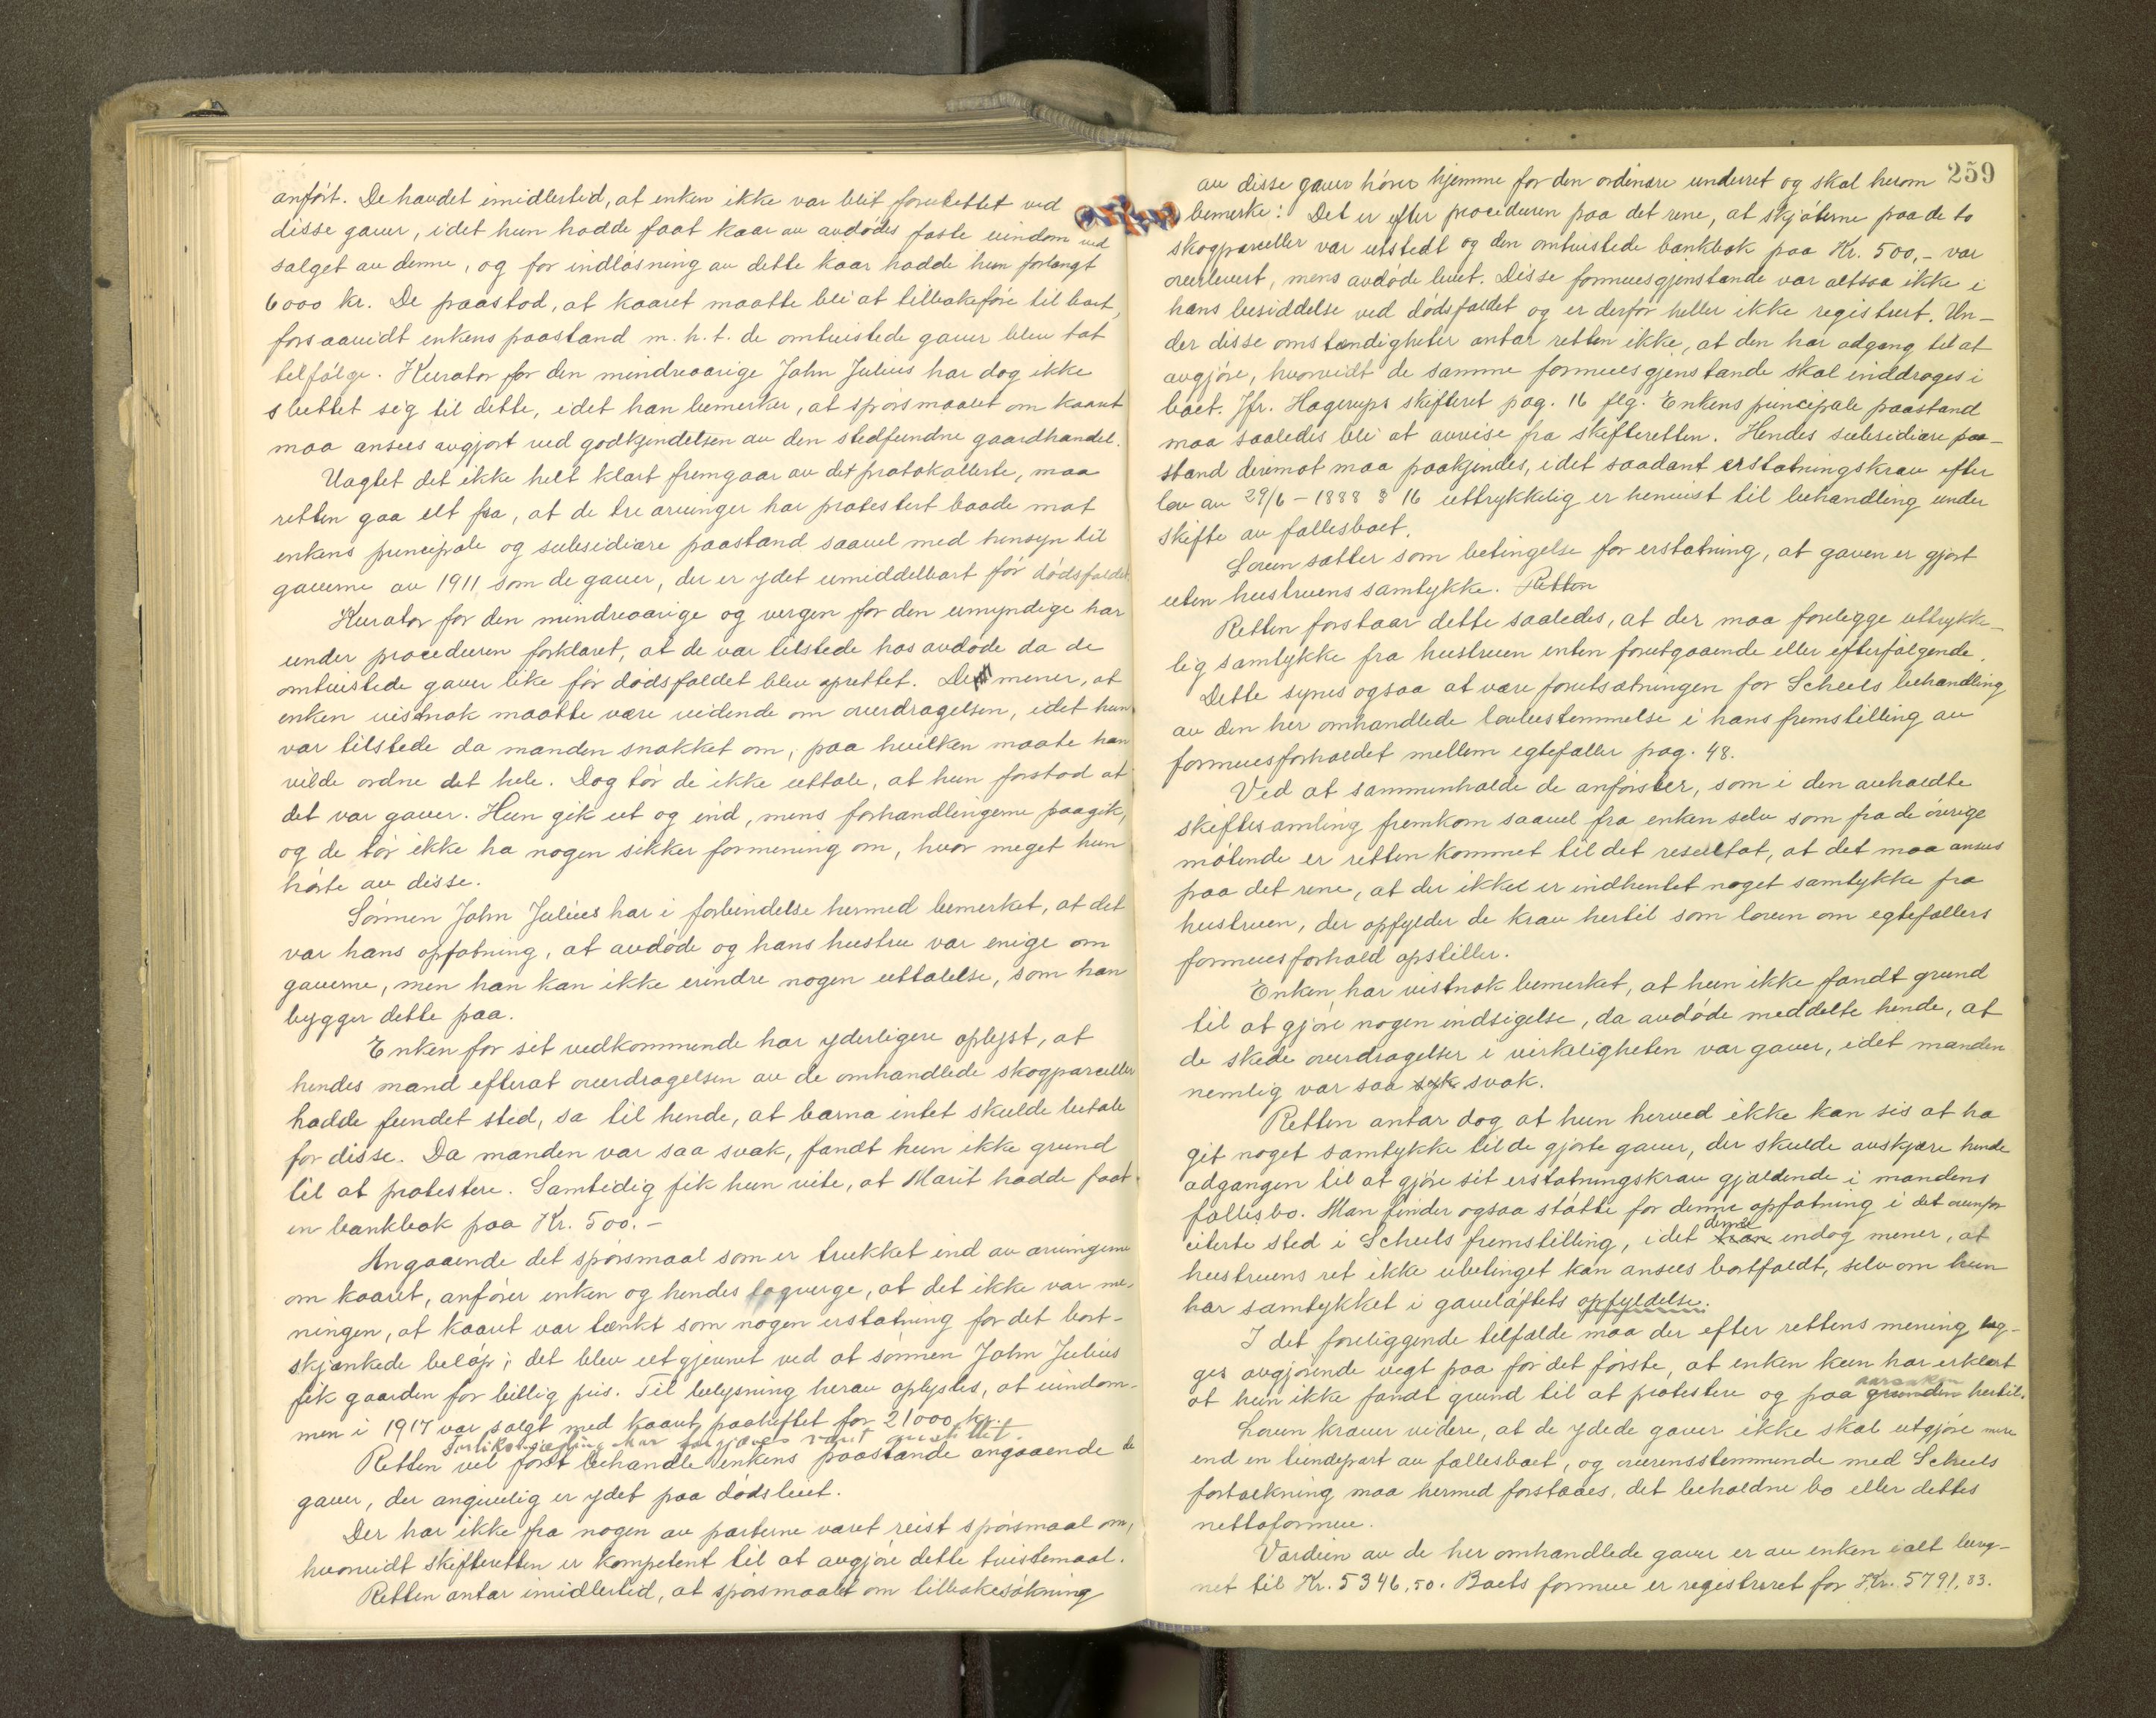 anført. De hævdet imidlertid, at enken ikke var blit forurettet ved
disse gaver, idet hun hadde faat kaar av avdødes faste eiendom ved
salget av denne, og for indløsning av dette kaar hadde hun forlangt
6000 kr. De paastod, at kaaret maatte bli at tilbakeføre til boet,
forsaavidt enkens paastand m.h.t. de omtvistede gaver blev tat
tilfølge. Kurator for den mindreaarige John Julius har dog ikke
sluttet sig til dette, idet han bemerker, at spørsmaalet om kaaret
maa ansees avgjort ved godkjendelsen av den stedfundne gaardhandel.
Uagtet det ikke helt klart fremgaar av det protokollerte, maa
retten gaa ut fra, at de tre arvinger har protestert baade mot
enkens principale og subsidiære paastand saavel med hensyn til
gaverne av 1911 som de gaver, der er ydet umiddelbart før dødsfaldet.
Kurator for den mindreaarige og vergen for den umyndige har
under proceduren forklaret, at de var tilstede hos avdøde da de
omtvistede gaver like før dødsfaldet blev oprettet. De mener, at
enken vistnok maatte være vidende om overdragelsen, idet hun
var tilstede da manden snakket om, paa hvilken maate han
vilde ordne det hele. Dog tør de ikke uttale, at hun forstod at
det var gaver. Hun gik ut og ind, mens forhandlingerne paagik,
og de tør ikke ha nogen sikker formening om, hvor meget hun
hørte av disse.
Sønnen John Julius har i forbindelse hermed bemerket, at det
var hans opfatning, at avdøde og hans hustru var enige om
gaverne, men han kan ikke erindre nogen uttalelse, som han
bygger dette paa.
Enken for sit vedkommende har yderligere oplyst, at
hendes mand efterat overdragelsen av de omhandlede skogparceller
hadde fundet sted, sa til hende, at barna intet skulde betale
for disse. Da manden var saa svak, fandt hun ikke grund
til at protestere. Samtidig fik hun vite, at Marit hadde faat
en bankbok paa Kr. 500.-
Angaaende det spørsmaal som er trukket ind av arvingerne
om kaaret, anfører enken og hendes lagverge, at det ikke var me-
ningen, at kaaret var tænkt som nogen erstatning for det bort-
skjænkede beløp; det blev utgjevnet ved at sønnen John Julius
fik gaarden for billig pris. Til belysning herav oplystes, at eiendom-
men i 1917 var solgt med kaaret paaheftet for 21000 kr.
Forliksmægling har forgjæves været anstillet.
Retten vil først behandle enkens paastande angaaende de
gaver, der angivelig er ydet paa dødsleiet.
Der har ikke fra nogen av parterne været reist spørsmaal om,
hvorvidt skifteretten er kompetent til at avgjøre dette tvistemaal.
Retten antar imidlertid, at spørsmaalet om tilbakesøkning
259
av disse gaver hører hjemme for den ordinære underret og skal herom
bemerke: Det er efter proceduren paa det rene, at skjøterne paa de to
skogparceller var utstedt og den omtvistede bankbok paa Kr. 500,- var
overlevert, mens avdøde levet. Disse formuesgjenstande var altsaa ikke i
hans besiddelse ved dødsfaldet og er derfor heller ikke registrert. Un-
der disse omstændigheter antar retten ikke, at den har adgang til at
avgjøre, hvorvidt de samme formuesgjenstande skal inddrages i
boet. Jfr. Hagerups skifteret pag. 16 flg. Enkens principale paastand
maa saaledes bli at avvise fra skifteretten. Hendes subsidiære paa-
stand derimot maa paakjendes, idet saadant erstatningskrav efter
lov av 29/6 - 1888 § 16 uttrykkelig er henvist til behandling under
skifte av fællesboet.
Loven sætter som betingelse for erstatning, at gaven er gjort
uten hustruens samtykke. Retten
Retten forstaar dette saaledes, at der maa foreligge uttrykke-
lig samtykke fra hustruen enten forutgaaende eller efterfølgende.
Dette synes ogsaa at være forutsætningen for Scheels behandling
av den her omhandlede lovbestemmelse i hans fremstilling av
formuesforholdet mellem egtefæller pag. 48.
Ved at sammenholde de anførsler, som i den avholdte
skiftesamling fremkom saavel fra enken selv som fra de øvrige
møtende er retten kommet til det resultat, at det maa ansees
paa det rene, at der ikke er indhentet noget samtykke fra
hustruen, der opfylder de krav hertil som loven om egtefællers
formuesforhold opstiller.
Enken har vistnok bemerket, at hun ikke fandt grund
til at gjøre nogen indsigelse, da avdøde meddelte hende, at
de skede overdragelser i virkeligheten var gaver, idet manden
nemlig var saa syk svak.
Retten antar dog at hun herved ikke kan sis at ha
git noget samtykke til de gjorte gaver, der skulde avskjære hende
adgangen til at gjøre sit erstatningskrav gjældende i mandens
fællesbo. Man finder ogsaa støtte for denne opfatning i det ovenfor
citerte sted i Scheels fremstilling, idet han denne endog mener, at
hustruens ret ikke ubetinget kan ansees bortfaldt, selv om hun
har samtykket i gaveløftets opfyldelse.
I det foreliggende tilfælde maa der efter rettens mening læg-
ges avgjørende vegt paa for det første, at enken kun har erklært
at hun ikke fandt grund til at protestere og paa grunden aarsaken hertil.
Loven kræver videre, at de ydede gaver ikke skal utgjøre mere
end en tiendepart av fællesboet, og overensstemmende med Scheels
fortolkning maa hermed forstaaes, det beholdne bo eller dettes
nettoformue.
Værdien av de her omhandlede gaver er av enken ialt bereg-
net til Kr. 5346,50. Boets formue er registreret for Kr. 5791,83.